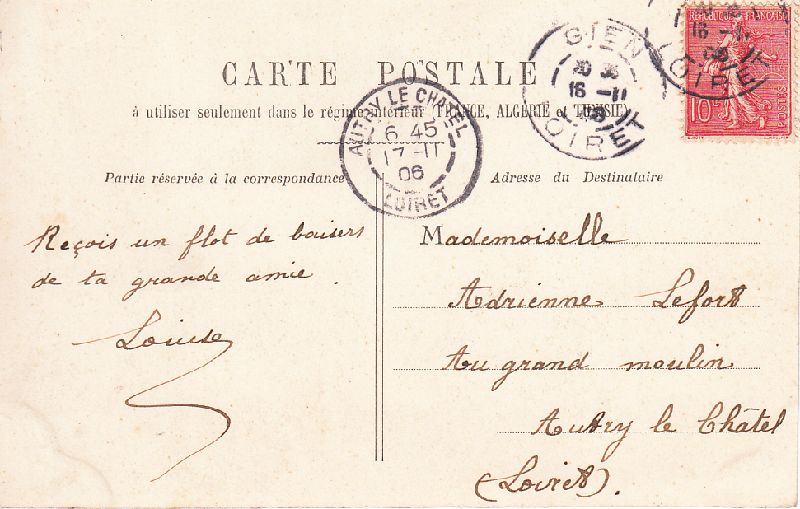 CARTE POSTALE
à utiliser seulement dans le régime intérieur (FRANCE, ALGÉRIE et TUNISIE)
Partie réservée à la correspondance
Adresse du Destinataire
Reçois un flot de baisers
de ta grande amie.
Louise
Mademoiselle
Adrienne Lefort
Au grand moulin
Autry le Châtel
(Loiret).
AUTRY LE CHATEL
6 45
17 - 11
06
LOIRET
GIEN
16 - 11
LOIRET
RÉPUBLIQUE FRANÇAISE
16 - 11
LOIRET
10
POSTES